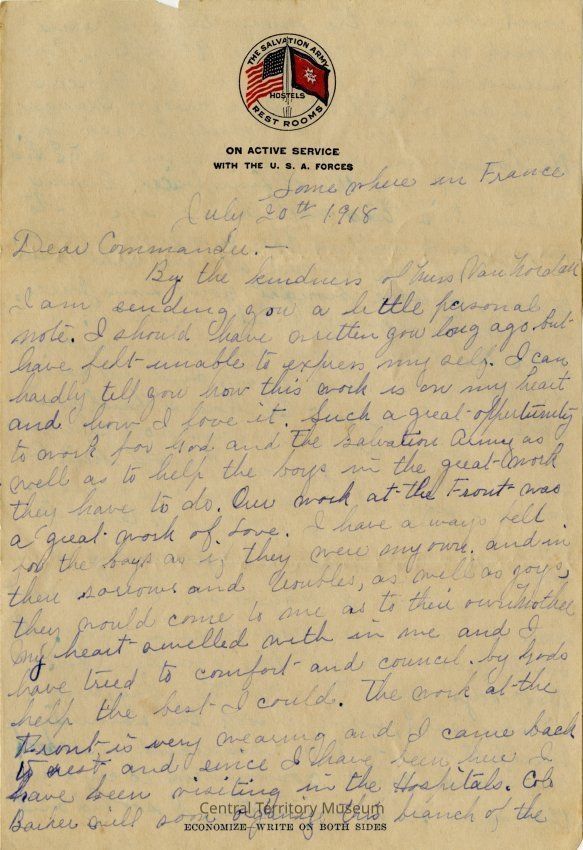 THE SALVATION ARMY
HOSTELS
REST ROOMS
ON ACTIVE SERVICE
WITH THE U. S. A. FORCES
Some where in France
July 20th 1918
Dear Commander. —
By the kindness of Miss Van Norden
I am sending you a little personal
note. I should have written you long ago but
have felt unable to express my self. I can
hardly tell you how this work is on my heart
and how I love it. Such a great opportunity
to work for God and the Salvation Army as
well as to help the boys in the great work
they have to do. Our work at the Front was
a great work of Love. I have a ways felt
for the boys as if they were my own. and in
their sorrows and troubles, as well as joys,
they would come to me as to their own Mother
My heart swelled with in me and I
have tried to comfort and council. by Gods
help the best I could. The work at the
Front is very wearing and I came back
to rest and since I have been here I
have been visiting in the Hospitals. Col
Barker will soon organize this branch of the
Central Territory Museum
ECONOMIZE—WRITE ON BOTH SIDES